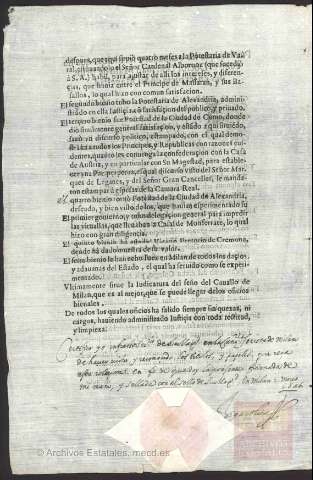 despues, que aqui siruiò quatro meses a la Potestaria de Va-
ral, gouernando el Señor Cardenal Albornoz (que sucediò
à S.A.) habil, para ajustar de alli los intereses, y diferen-
cias, que hauia entre el Principe de Masseran, y sus Va-
sallos, lo qual hizo con comun satisfacion.
El segundo bienio tubo la Potestaria de Alexandria, administrã
do en ella Iusticia à satisfacion del publico, y priuado.
El tercero bienio fue Potestad de la Ciudad de Como, donde
dio semejante general satisfacion, y
famoso discurso politico, estampado, con el qual demo-
stiò à todos los Principes, y Republicas con razones eui-
dentes, quanto les conuenia la confederacion con la Casa
de Austria, y en particular con Su Magestad, para estable-
cer vna Paz perpetua, el qual discurso visto del Señor Mar-
ques de Leganes, y del Señor Gran Canceller, le manda-
ron estampar à espesas de la Camara Real.
El quarto bienio tornò Potestad de la Ciudad de Alexandria,
desseado, y bien visto de los que hauian experimentado su
El primer gouierno, y tubo delegacion general para impedir
las vituallas, que lleuauan à Casal de Monferrato, lo qual
hizo con gran diligencia.
El quinto bienio ha estado Vicario Pretorio de Cremona,
donde ha dado muestra de su valor.
El sesto bienio ha sido Iuez en Milan de todos los dacios,
y aduanas del Estado, el qual ha seruido como se espe-
rimentado.
Vltimamente tiene la Iudicatura del seño del Cauallo de
Milan, que es al mejor, que se puede llegar de los oficios
bienales.
De todos los quales oficios ha salido siempre sin quexas, ni
cargos, hauiendo administrado Iusticia con toda rectitud,
y limpieza.
de hauer visto, y reconocido los titulos, y papeles, que reza
esta relacion, en fe de que doy la presente firmada de
mi mano, y sellada con el sello de Milan
© Archivos Estatales, mecd.es
ARCHIVOS
ESTATALES